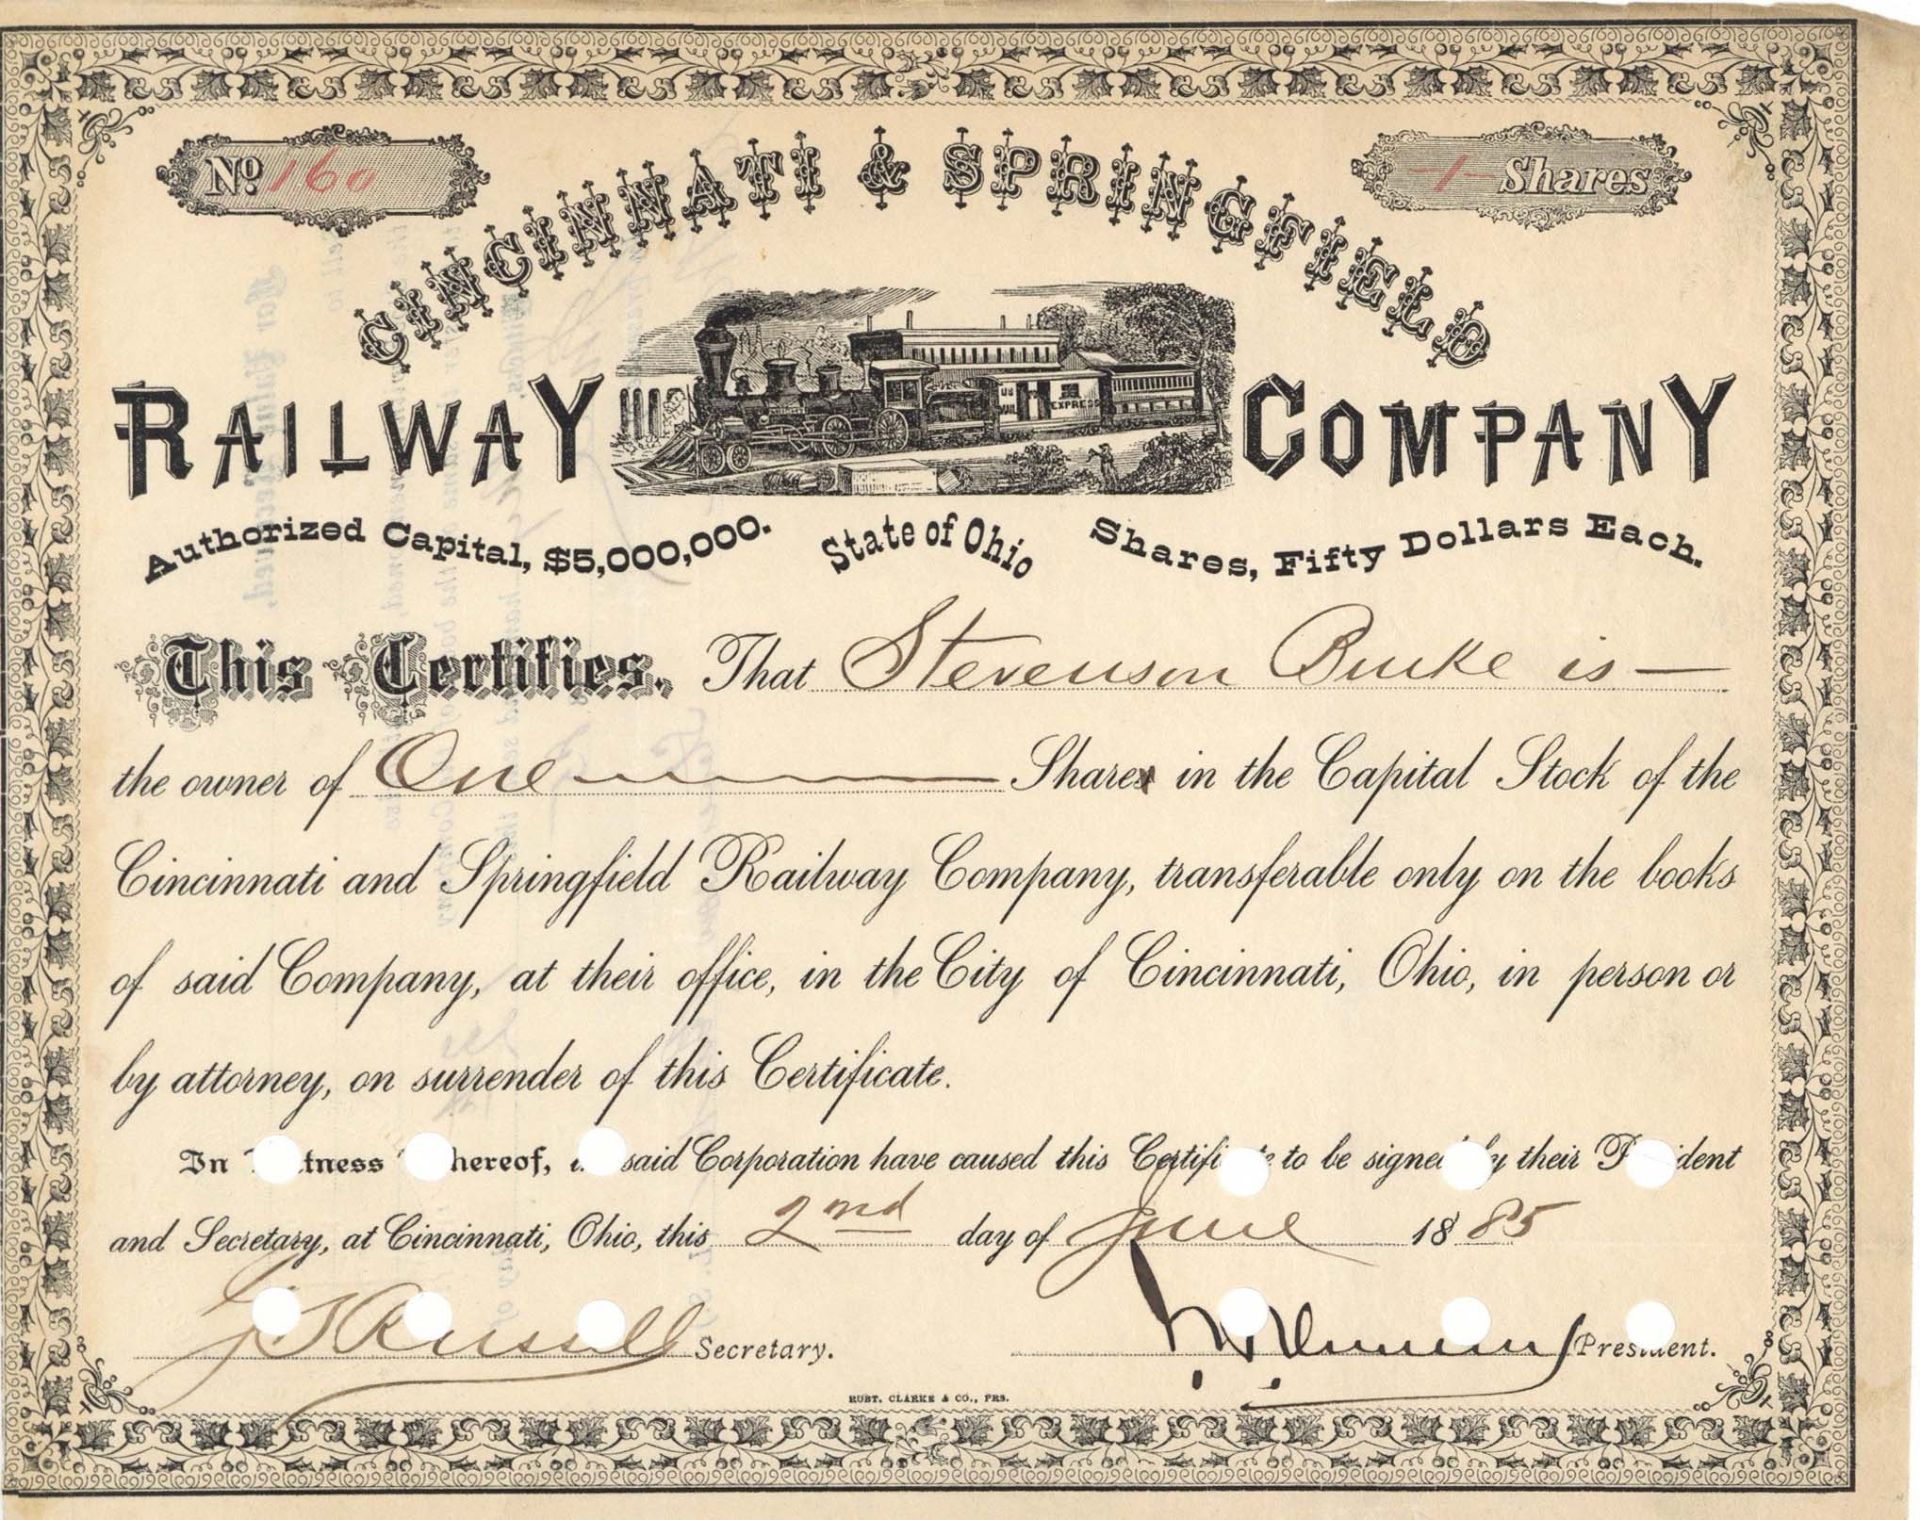 No. 160
-1- Shares
CINCINNATI & SPRINGFIELD
RAILWAY COMPANY
US MAIL EXPRESS
Authorized Capital, $5,000,000. State of Ohio Shares, Fifty Dollars Each.
This Certifies, That Stevenson Burke is
the owner of One Share in the Capital Stock of the
Cincinnati and Springfield Railway Company, transferable only on the books
of said Company, at their office, in the City of Cincinnati, Ohio, in person or
by attorney, on surrender of this Certificate.
In Witness Whereof, said Corporation have caused this Certificate to be signed by their President
and Secretary, at Cincinnati, Ohio, this 2nd day of June 1885
Russell Secretary.
President.
ROBT. CLARKE & CO., PRS.